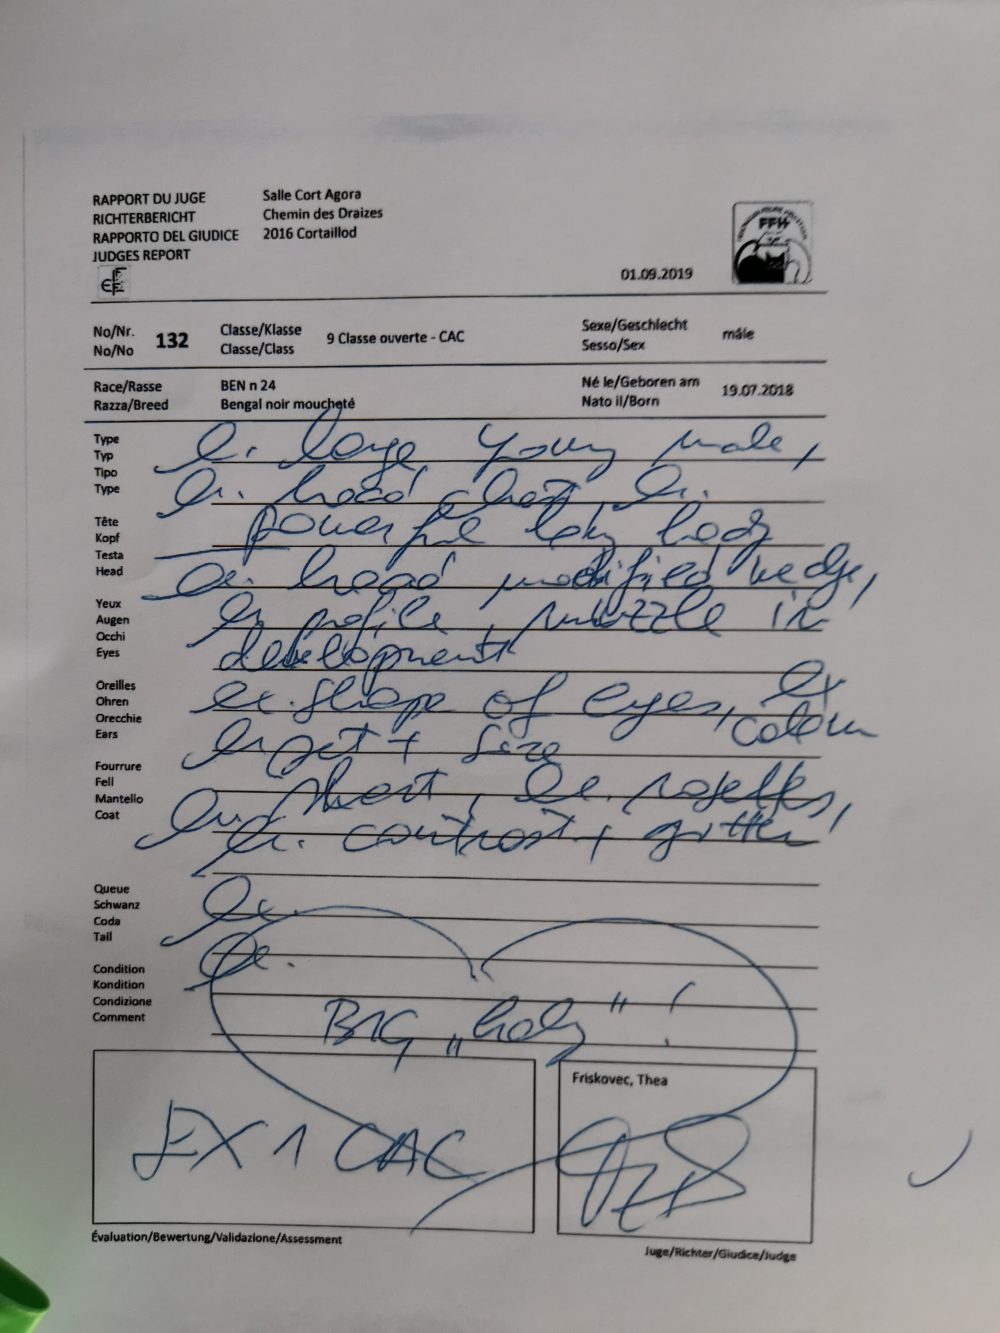 RAPPORT DU JUGE Salle Cort Agora
RICHTERBERICHT Chemin des Draizes
RAPPORTO DEL GIUDICE 2016 Cortaillod
JUDGES REPORT
FFH
01.09.2019
No/Nr. 132 Classe/Klasse 9 Classe ouverte - CAC Sexe/Geschlecht mâle
No/No Classe/Class Sesso/Sex
Race/Rasse BEN n 24 Né le/Geboren am 19.07.2018
Razza/Breed Bengal noir moucheté Nato il/Born
Type
Typ
Tipo
Type
ex. large young male,
ex. broad chest, ex.
powerful body
Tête
Kopf
Testa
Head
ex. head modified wedge,
ex profile, muzzle in
development
Yeux
Augen
Occhi
Eyes
ex. shape of eyes, ex
colour
Oreilles
Ohren
Orecchie
Ears
ex set + size
Fourrure
Fell
Mantello
Coat
ex. short, ex. rosettes,
ex. contrast + glitter
Queue
Schwanz
Coda
Tail
ex.
Condition
Kondition
Condizione
Comment
ex.
BIG „baby“!
EX 1 CAC
Friskovec, Thea
Évaluation/Bewertung/Validazione/Assessment
Juge/Richter/Giudice/Judge